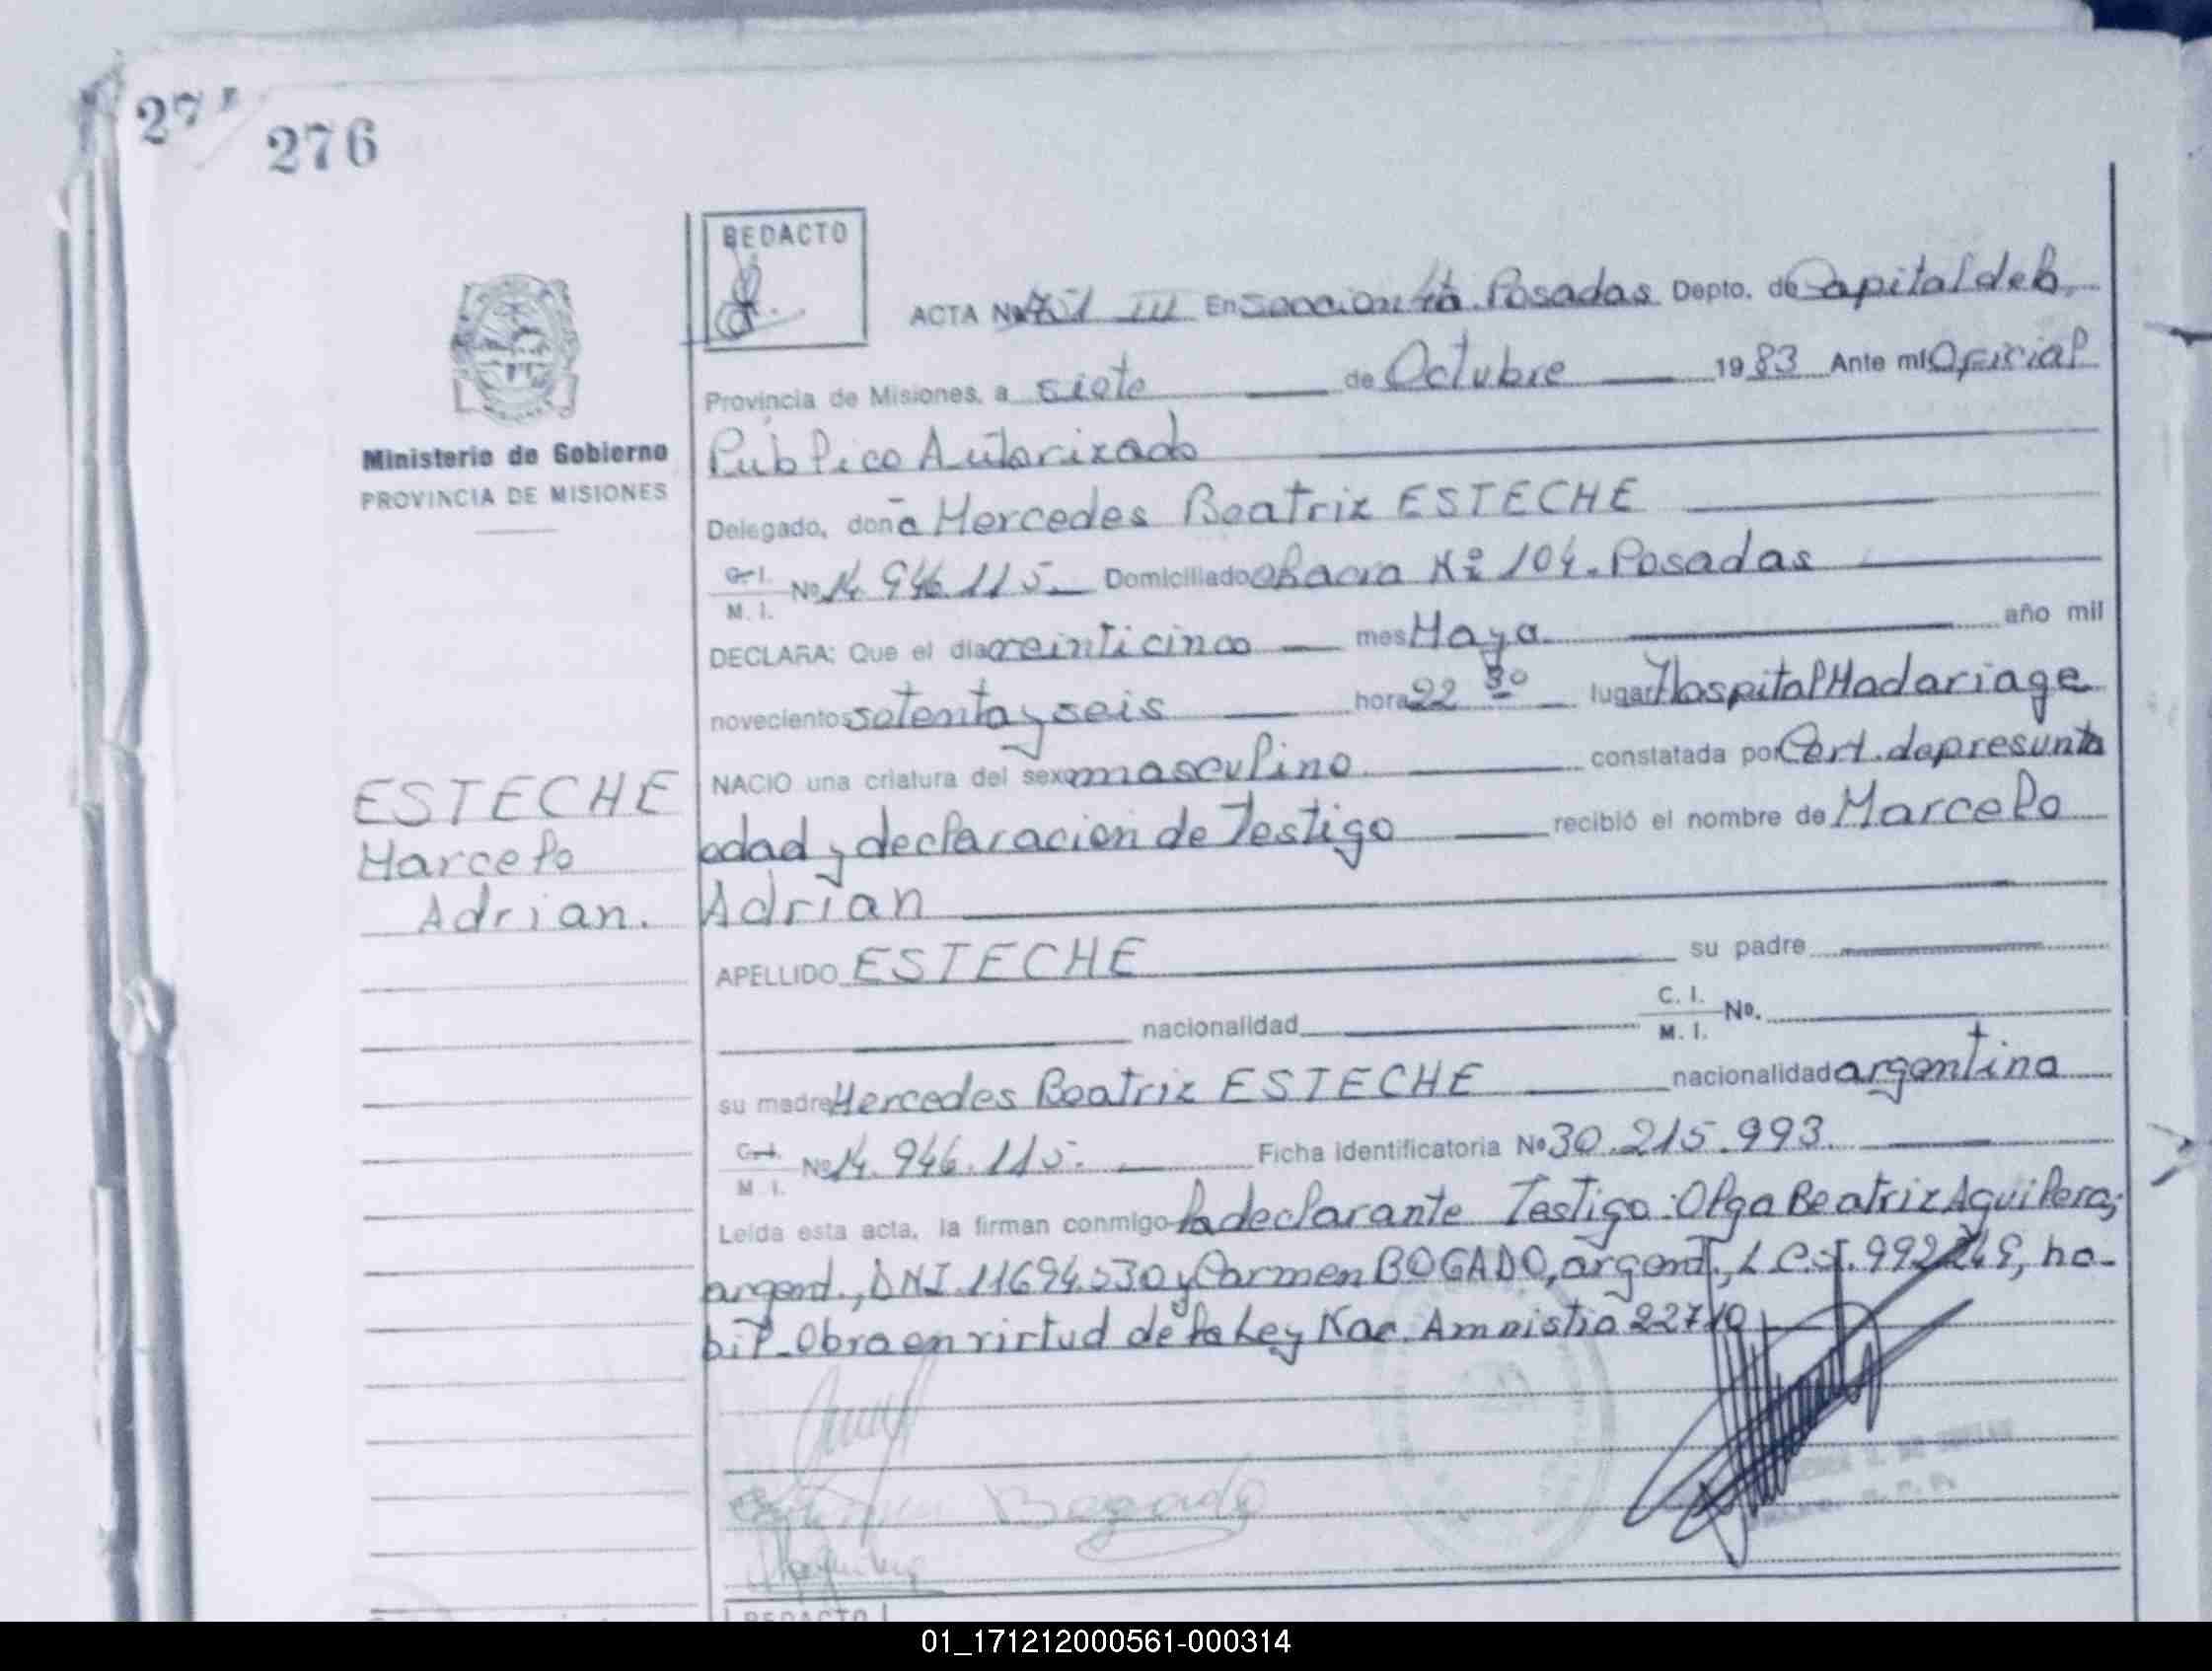 276
REDACTO
ACTA Nº 551 III En Sección 4ta. Posadas Depto. de Capital de la
Provincia de Misiones, a siete de Octubre 1983 Ante mi Oficial
Ministerio de Gobierno
PROVINCIA DE MISIONES
Público Autorizado
Delegado, doña Mercedes Beatriz ESTECHE
C. I.
M. I.
Nº 14.946.115. Domiciliado Chacra Nº 104. Posadas
DECLARA: Que el día veinticinco mes Mayo año mil
novecientos setenta y seis hora 22 30 lugar Hospital Madariaga
NACIO una criatura del sexo masculino constatada por Cert. de presunta
ESTECHE
Marcelo
Adrian.
edad y declaracion de Testigo recibió el nombre de Marcelo
Adrian
APELLIDO ESTECHE su padre
nacionalidad C. I.
M. I.
No.
su madre Mercedes Beatriz ESTECHE nacionalidad argentina
C. I.
M. I.
Nº 14.946.115. Ficha identificatoria Nº 30.215.993.
Leída esta acta, la firman conmigo la declarante Testigo: Olga Beatriz Aguilera,
argent., DNI. 11694.530 y Carmen BOGADO, argent., L.C. 992249, ha-
bil. Obra en virtud de la Ley Nac. Amnistia 22710
Bogado
REDACTO
01_171212000561-000314